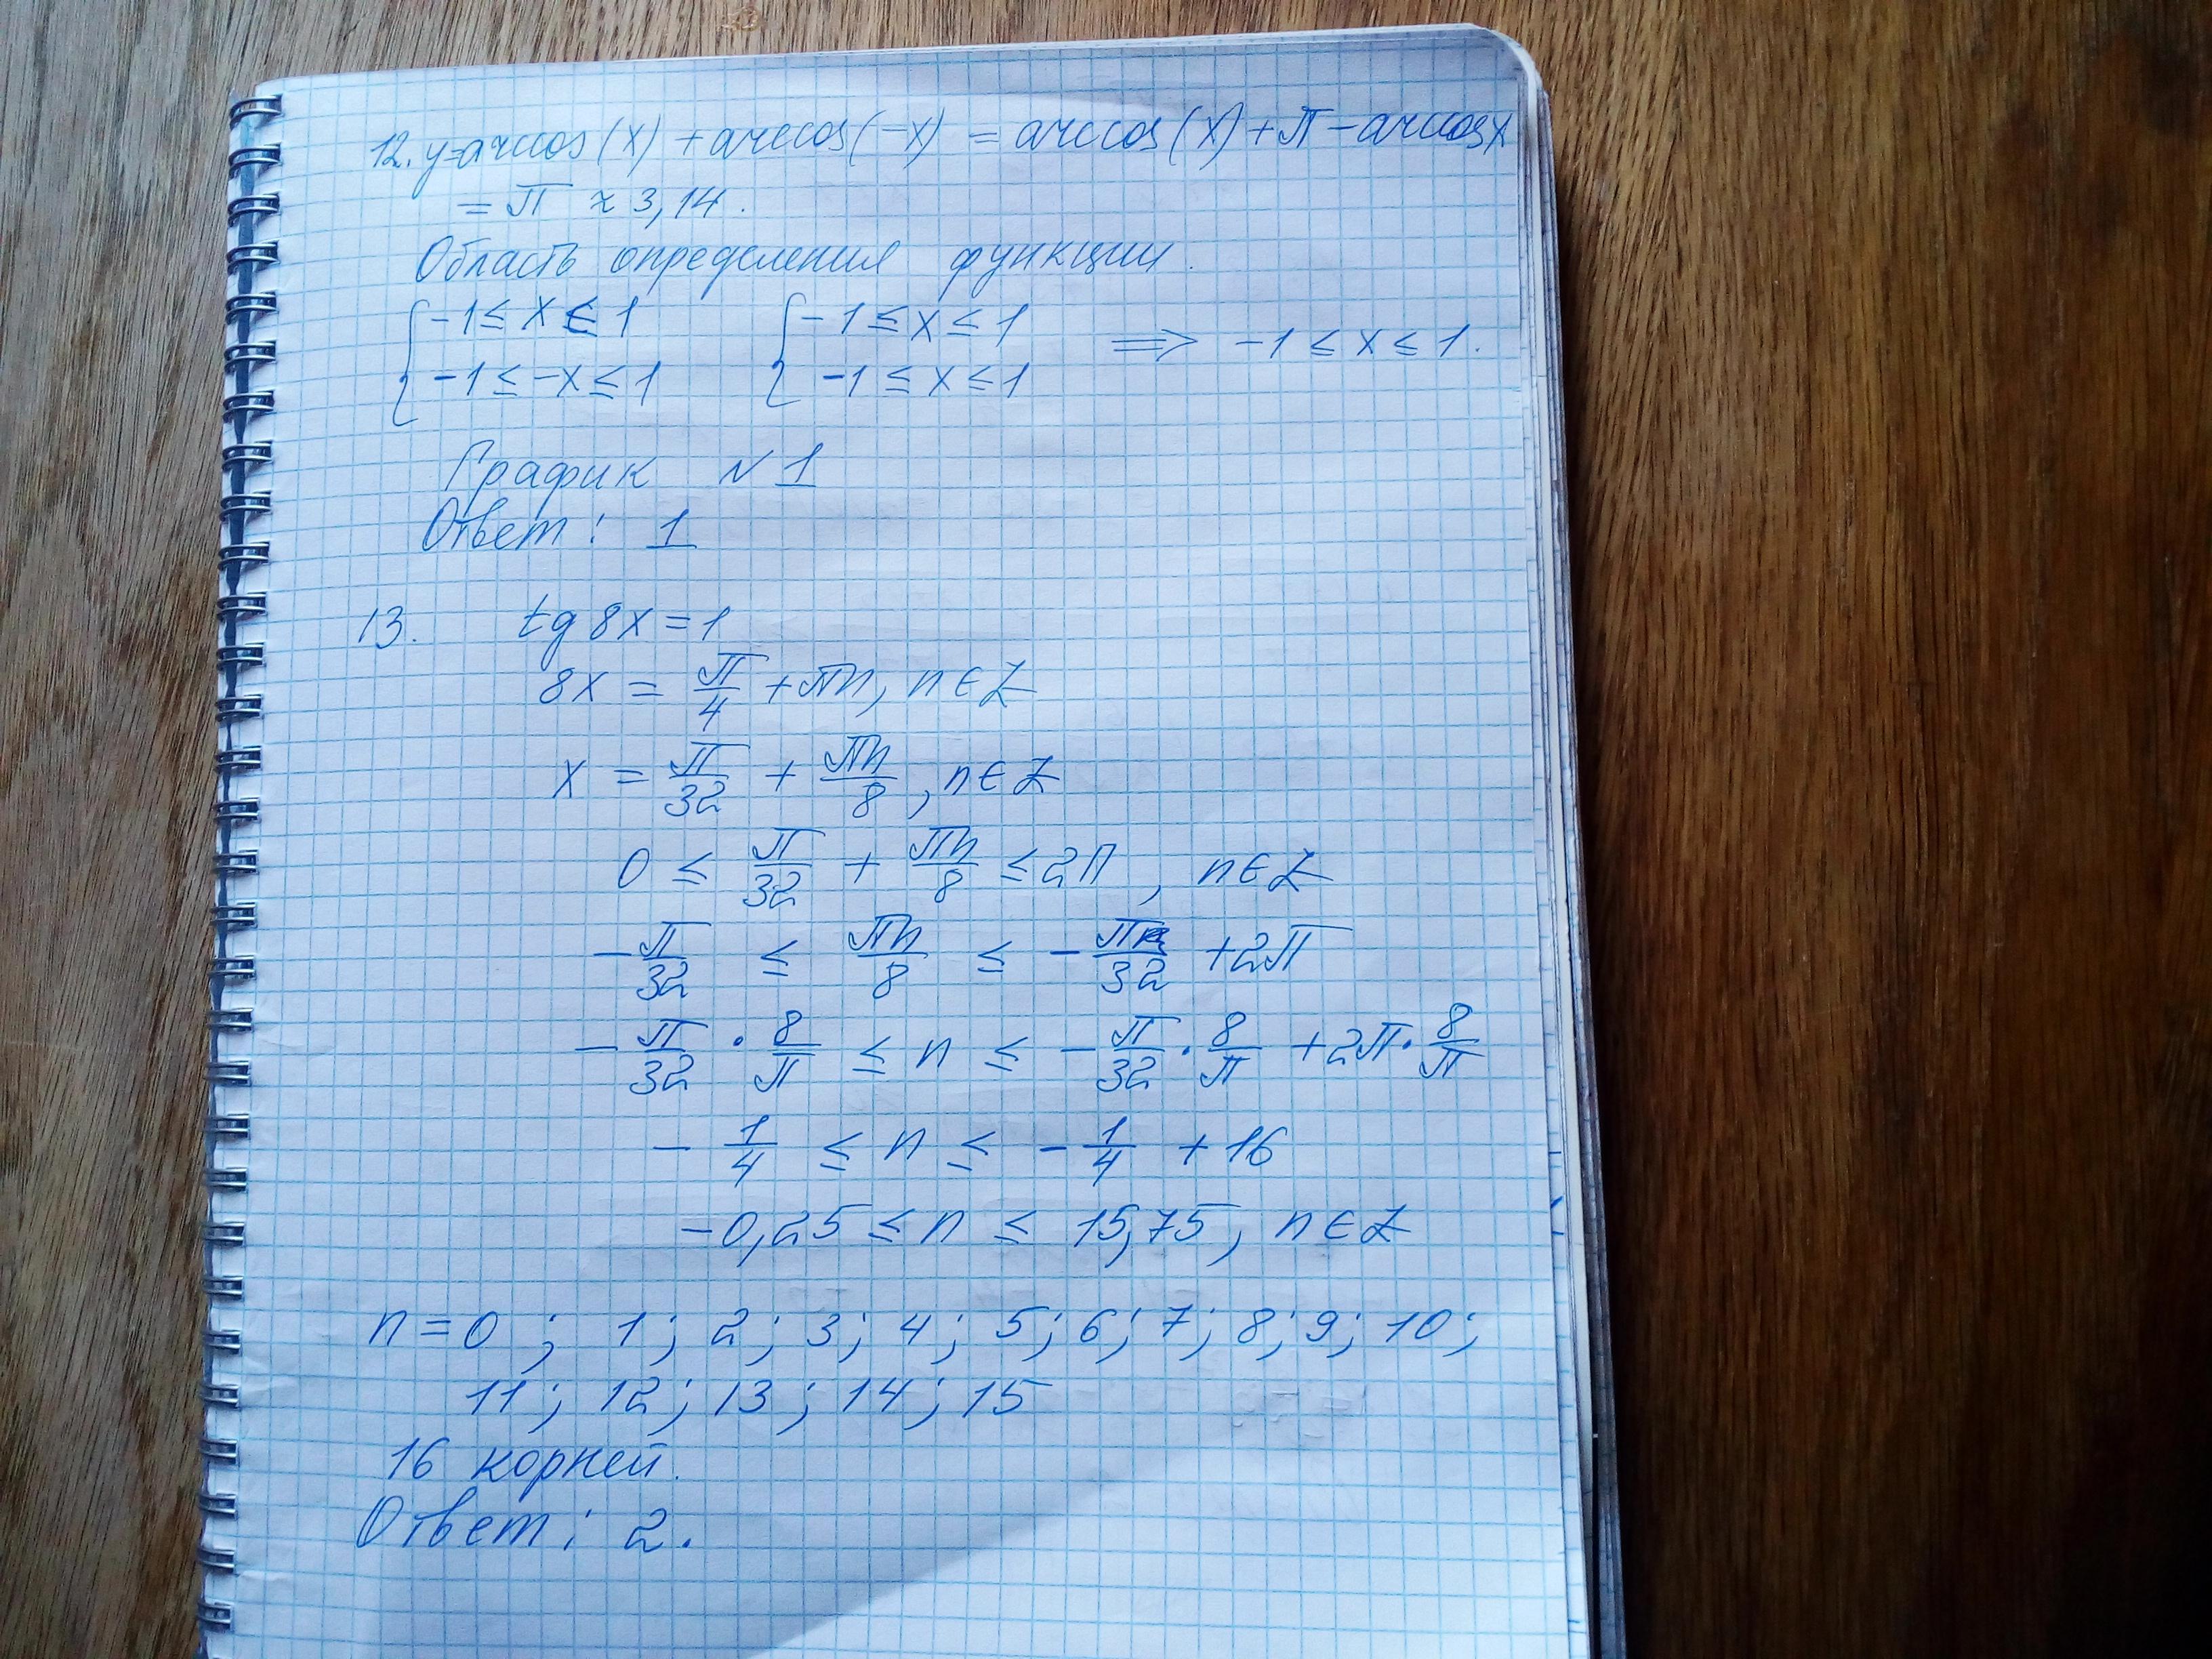 12. y=arccos(x) + arccos(-x) = arccos(x) + π - arccosx
= π ≈ 3,14.
Область определения функции.
{ -1 ≤ x ≤ 1 { -1 ≤ x ≤ 1 ⟹ -1 ≤ x ≤ 1.
{ -1 ≤ -x ≤ 1 { -1 ≤ x ≤ 1
График N 1
Ответ: 1
13. tg 8x = 1
8x = π/4 + πn, n∈Z
x = π/32 + πn/8, n∈Z
0 ≤ π/32 + πn/8 ≤ 2π, n∈Z
-π/32 ≤ πn/8 ≤ -π/32 + 2π
-π/32 · 8/π ≤ n ≤ -π/32 · 8/π + 2π · 8/π
-1/4 ≤ n ≤ -1/4 + 16
-0,25 ≤ n ≤ 15,75, n∈Z
n = 0; 1; 2; 3; 4; 5; 6; 7; 8; 9; 10;
11; 12; 13; 14; 15
16 корней.
Ответ: 2.